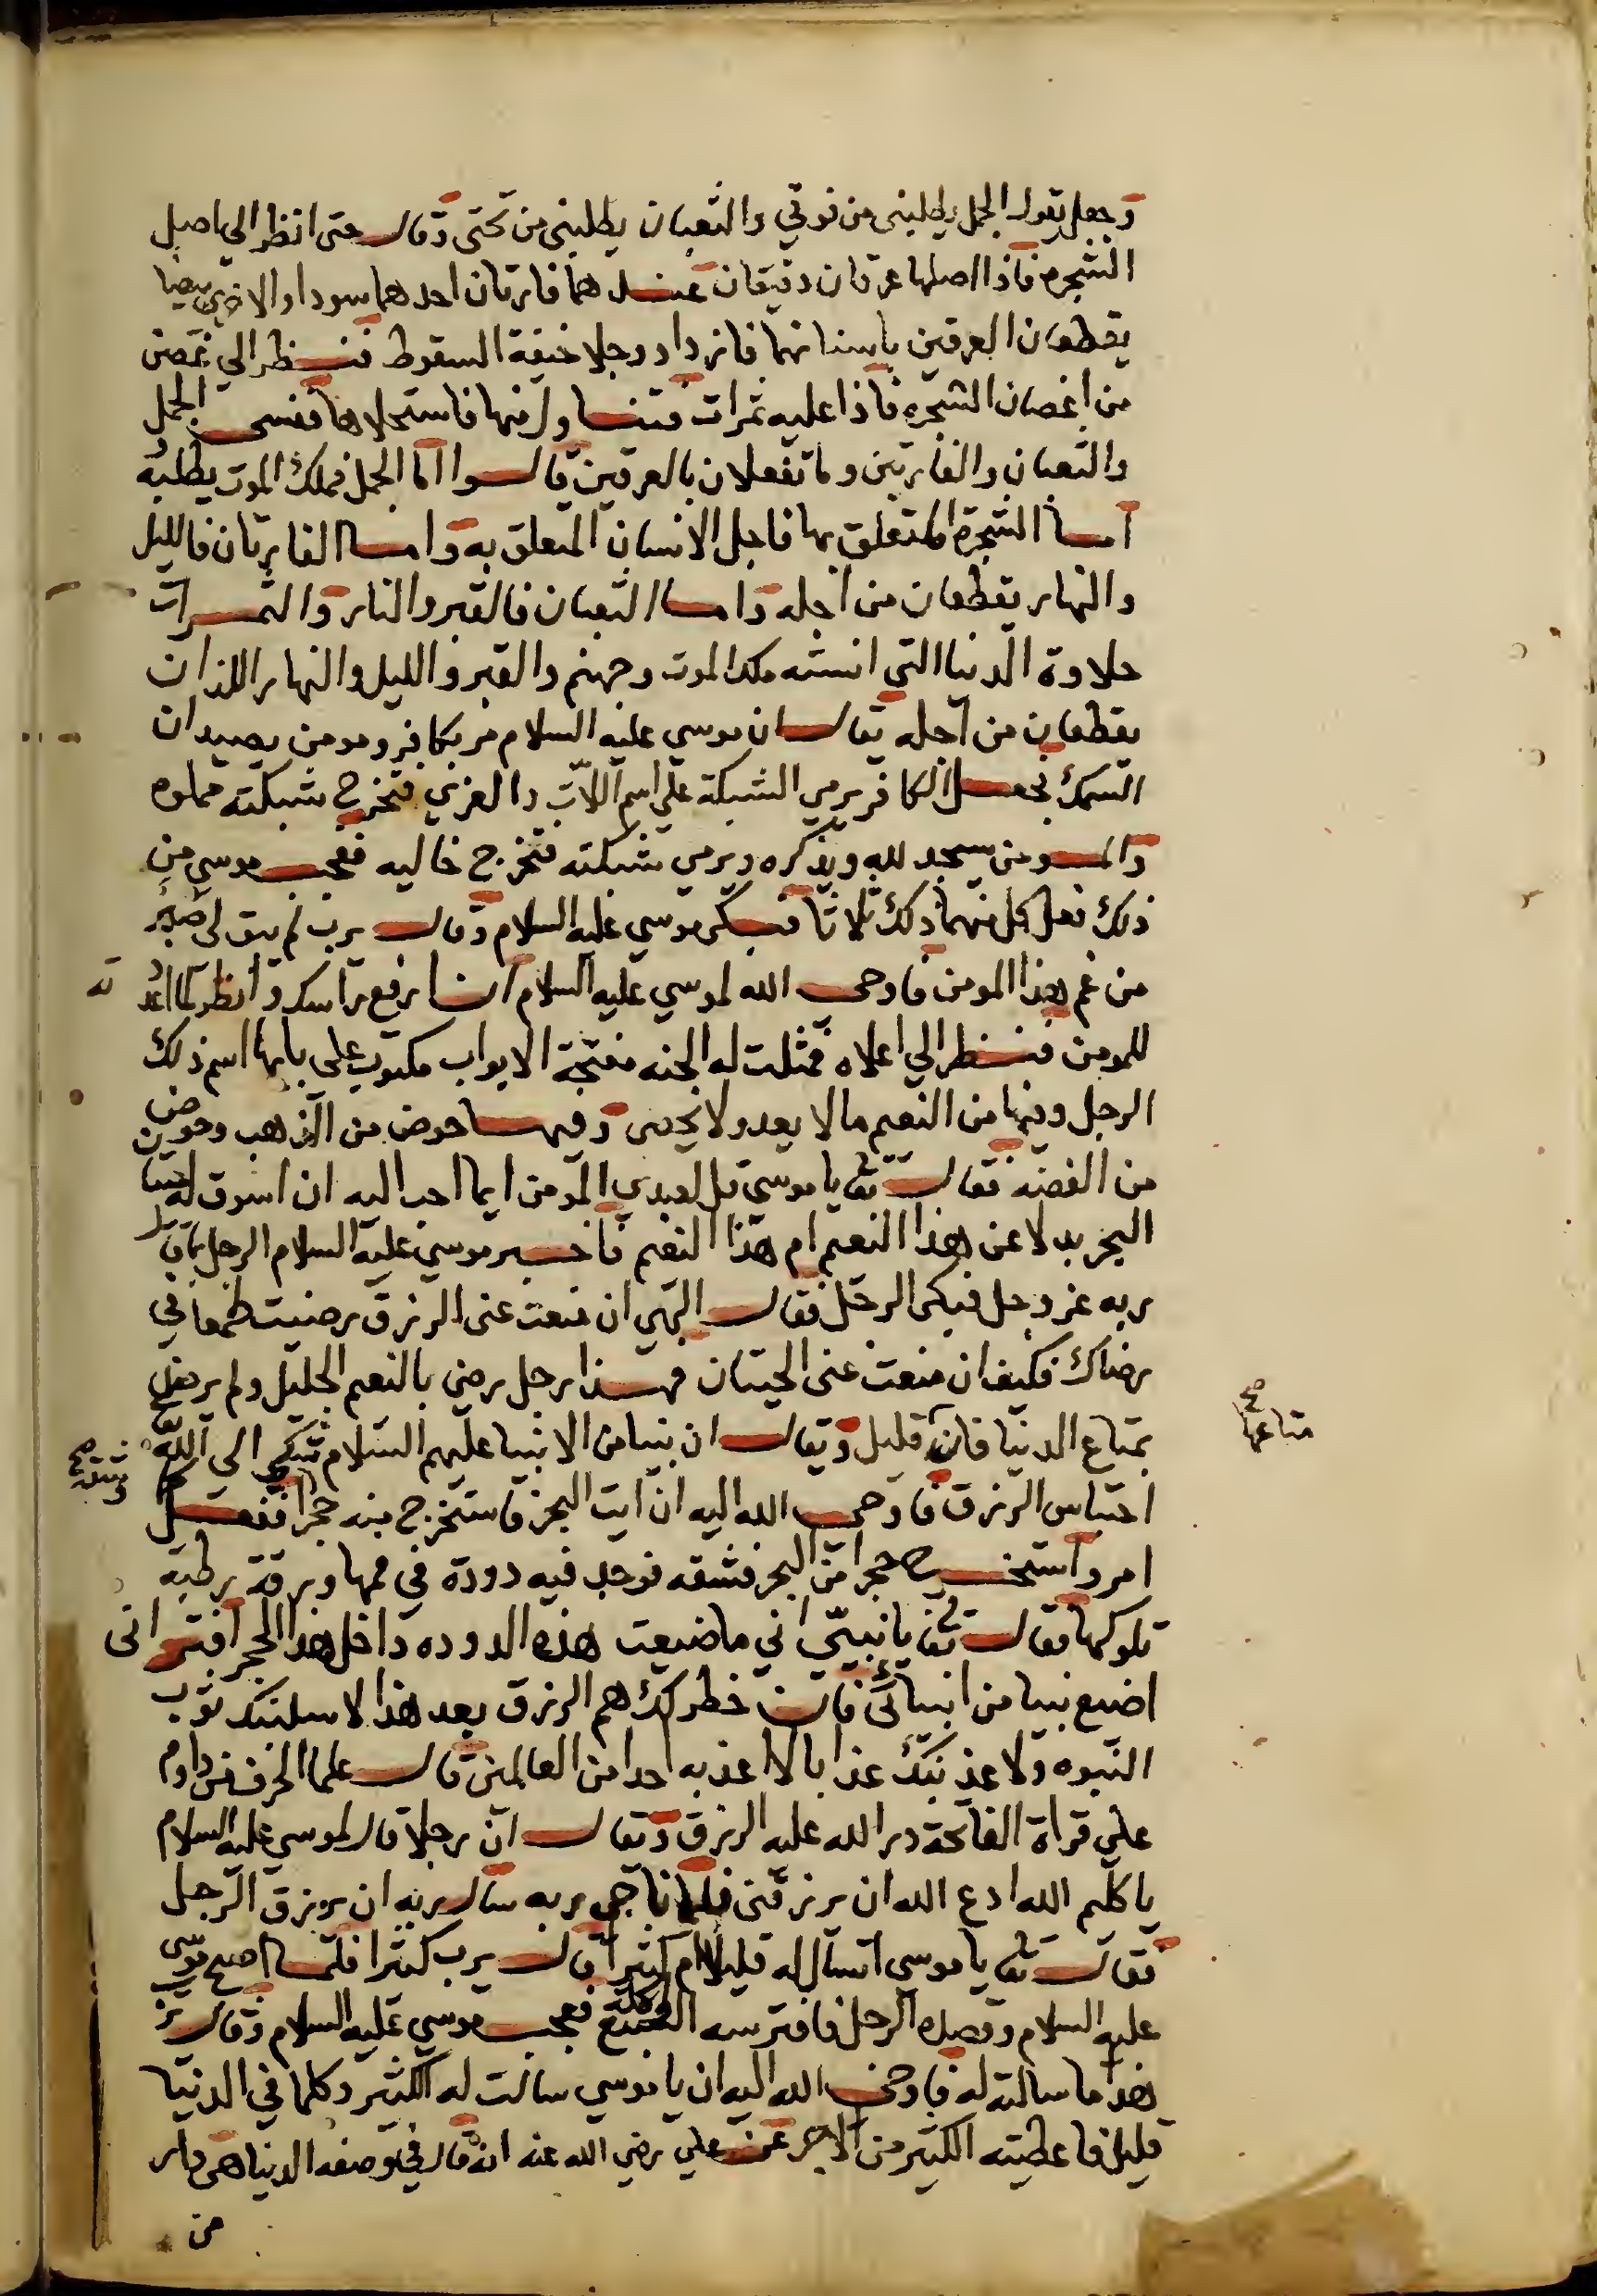 وجعل يقول الجمل يطلبني من فوقي والثعبان يطلبني من تحتي وقال حتى انظر الي اصل
الشجره فاذا اصلها عرقان دقيقان عند هما فارتان احدهما سودا والاخري بيضا
يقطعان العرقين باسنانهما فازداد وجلا خيفة السقوط فنظر الي غصن
من اغصان الشجره فاذا عليه ثمرات فتناول منها فاستحلاها فنسي الجمل
والثعبان والفارتين وما تفعلان بالعرقين قالوا اما الجمل فملك الموت يطلبه
اما الشجرة المتعلق بها فاجل الانسان المتعلق به واما الفارتان فالليل
والنهار يقطعان من اجله واما الثعبان فالقبر والنار والثمرات
حلاوة الدنيا التي انسته ملك الموت وجهنم والقبر والليل والنهار اللذان
يقطعان من اجله يقال ان موسي عليه السلام مر بكافر ومومن يصيدان
السمك فجعل الكافر يرمي الشبكة علي اسم اللات والعزي فتخرج شبكته مملوه
والمومن يسجد لله ويذكره ويرمي شبكته فتخرج خاليه فعجب موسي من
ذلك فعل كل منهما ذلك ثلاثا فبكي موسي عليه السلام وقال يرب لم يبق لي صبر
من غم هذا المومن فاوحي الله لموسي عليه السلام ان ارفع راسك وانظر لما اعد
له
للمومن فنظر الي اعلاه فمثلت له الجنه مفتحة الابواب مكتوب علي بابها اسم ذلك
الرجل وفيها من النعيم ما لا يعد ولا يحصى وفيها حوض من الذهب وحوض
من الفضه فقال تع يا موسي قل لعبدي المومن ايما احب اليه ان اسوق له حيتان
البحر بدلا عن هذا النعيم ام هذا النعيم فاخبر موسي عليه السلام الرجل بما قال
ربه عز وجل فبكى الرجل فقال الهي ان منعت عني الرزق رضيت طمعا في
رضاك فكيف ان منعت عني الحيتان فهذا رجل رضي بالنعيم الجليل ولم يرض
بمتاع الدنيا فان قليل ويقال ان نبيا من الانبيا عليهم السلام شكي الى الله
متاعها صح
احتباس الرزق فاوحي الله اليه ان ايت البحر فاستخرج منه حجرا ففعل
امر واستخرج حجرا من البحر فشقه فوجد فيه دودة في فمها ورقة رطبه
تلوكها فقال تع يا نبيي اني ما ضيعت هذه الدوده داخل هذا الحجر افتراني
اضيع نبيا من انبيائي فان خطر لك هم الرزق بعد هذا لاسلبنك ثوب
النبوه ولاعذبنك عذابا لا اعذبه احدا من العالمين قال علما الحرف من داوم
علي قراة الفاتحة در الله عليه الرزق ويقال ان رجلا قال لموسي عليه السلام
يا كليم الله ادع الله ان يرزقني فلما ناجي ربه سال ربه ان يرزق الرجل
فقال تع يا موسي اتسال له قليلا ام كثيرا قال يرب كثيرا فلما اصبح موسي
عليه السلام وقصد الرجل فافترسه السبع فعجب موسي عليه السلام وقال يرب
هذا ما سالته له فاوحي الله اليه ان يا موسي سالت له الكثير وكلما في الدنيا
قليل فاعطيته الكثير من الاجر عن علي رضي الله عنه انه قال في وصفه الدنيا هي دار
من